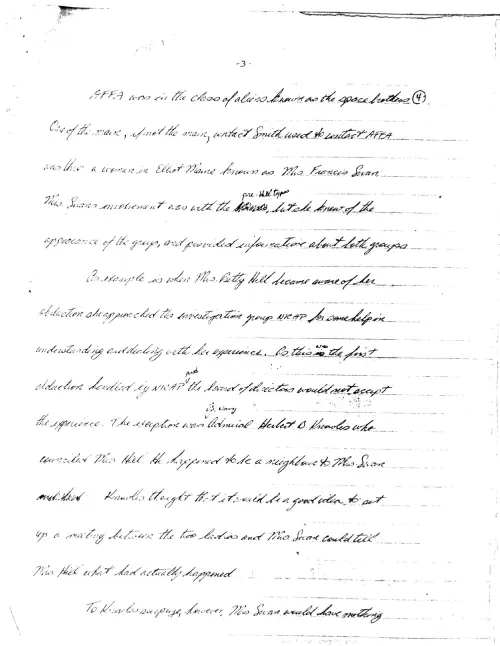 -3-
AFFA was in the class of aliens known as the space brothers (4)
One of the main, if not the main, contact Smith used to contact AFFA
was thru a woman in Elliot Maine known as Mrs. Frances Swan
pre-Hill type
Mrs. Swan's involvement was with the but she knew of the
appearance of the grays, and provided information about both groups
An example is when Mrs. Betty Hill became aware of her
abduction she approached the investigation group NICAP for some help in
understanding and dealing with her experience. As this was the first
abduction handled by NICAP the board of directors would not accept
the experience. The exception was Admiral Herbert B. Knowles who
consoled Mrs Hill. He happened to be a neighbour to Mrs Swan
Knowles thought that it would be a good idea to set
up a meeting between the two ladies and Mrs Swan could tell
Mrs Hill what had actually happened
To Knowles surprize, however, Mrs Swan would have nothing